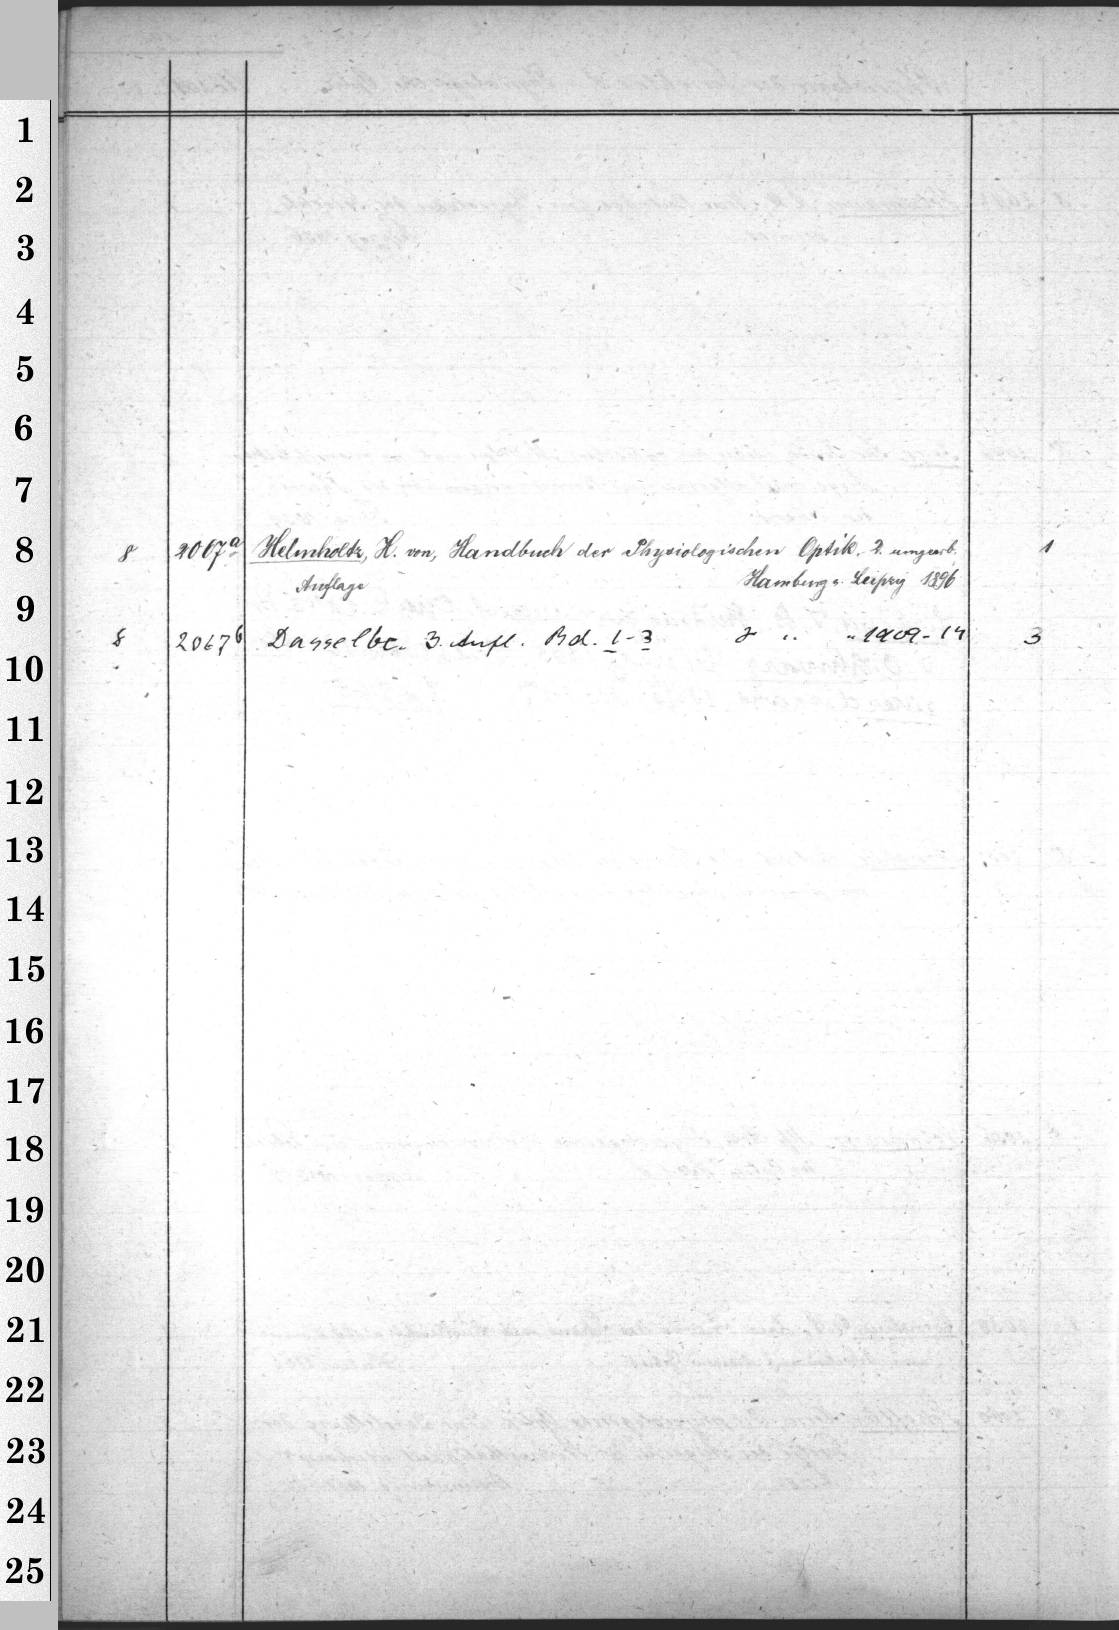 1
2
3
4
5
6
7
8
8 2067a Helmholtz, H. von, Handbuch der Physiologischen Optik. 2. umgearb. 1
Auflage Hamburg u. Leipzig 1896
9
8 2067b Dasselbe. 3. Aufl. Bd. 1-3 " " 1909-14 3
10
11
12
13
14
15
16
17
18
19
20
21
22
23
24
25